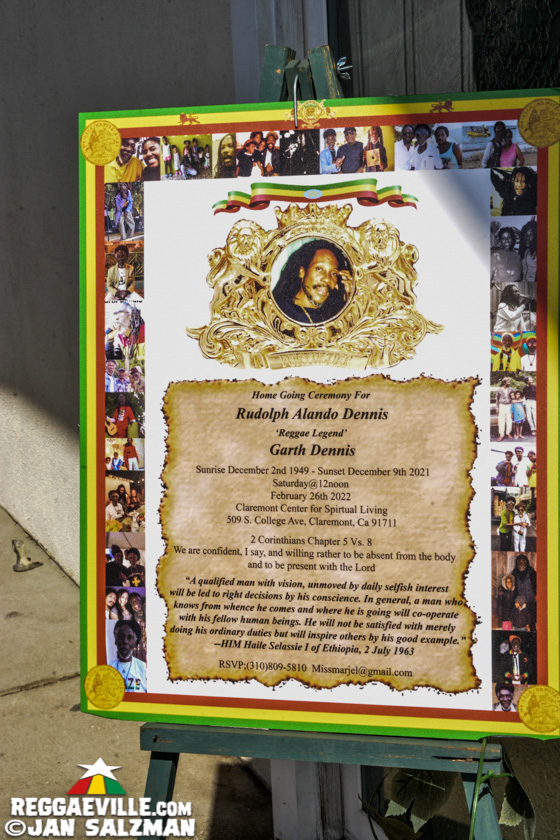 Home Going Ceremony For
Rudolph Alando Dennis
'Reggae Legend'
Garth Dennis
Sunrise December 2nd 1949 - Sunset December 9th 2021
Saturday@12noon
February 26th 2022
Claremont Center for Spirtual Living
509 S. College Ave, Claremont, Ca 91711
2 Corinthians Chapter 5 Vs. 8
We are confident, I say, and willing rather to be absent from the body
and to be present with the Lord
"A qualified man with vision, unmoved by daily selfish interest
will be led to right decisions by his conscience. In general, a man who
knows from whence he comes and where he is going will co-operate
with his fellow human beings. He will not be satisfied with merely
doing his ordinary duties but will inspire others by his good example."
--HIM Haile Selassie I of Ethiopia, 2 July 1963
RSVP;(310)809-5810 Missmarjel@gmail.com
REGGAEVILLE.COM
©JAN SALZMAN